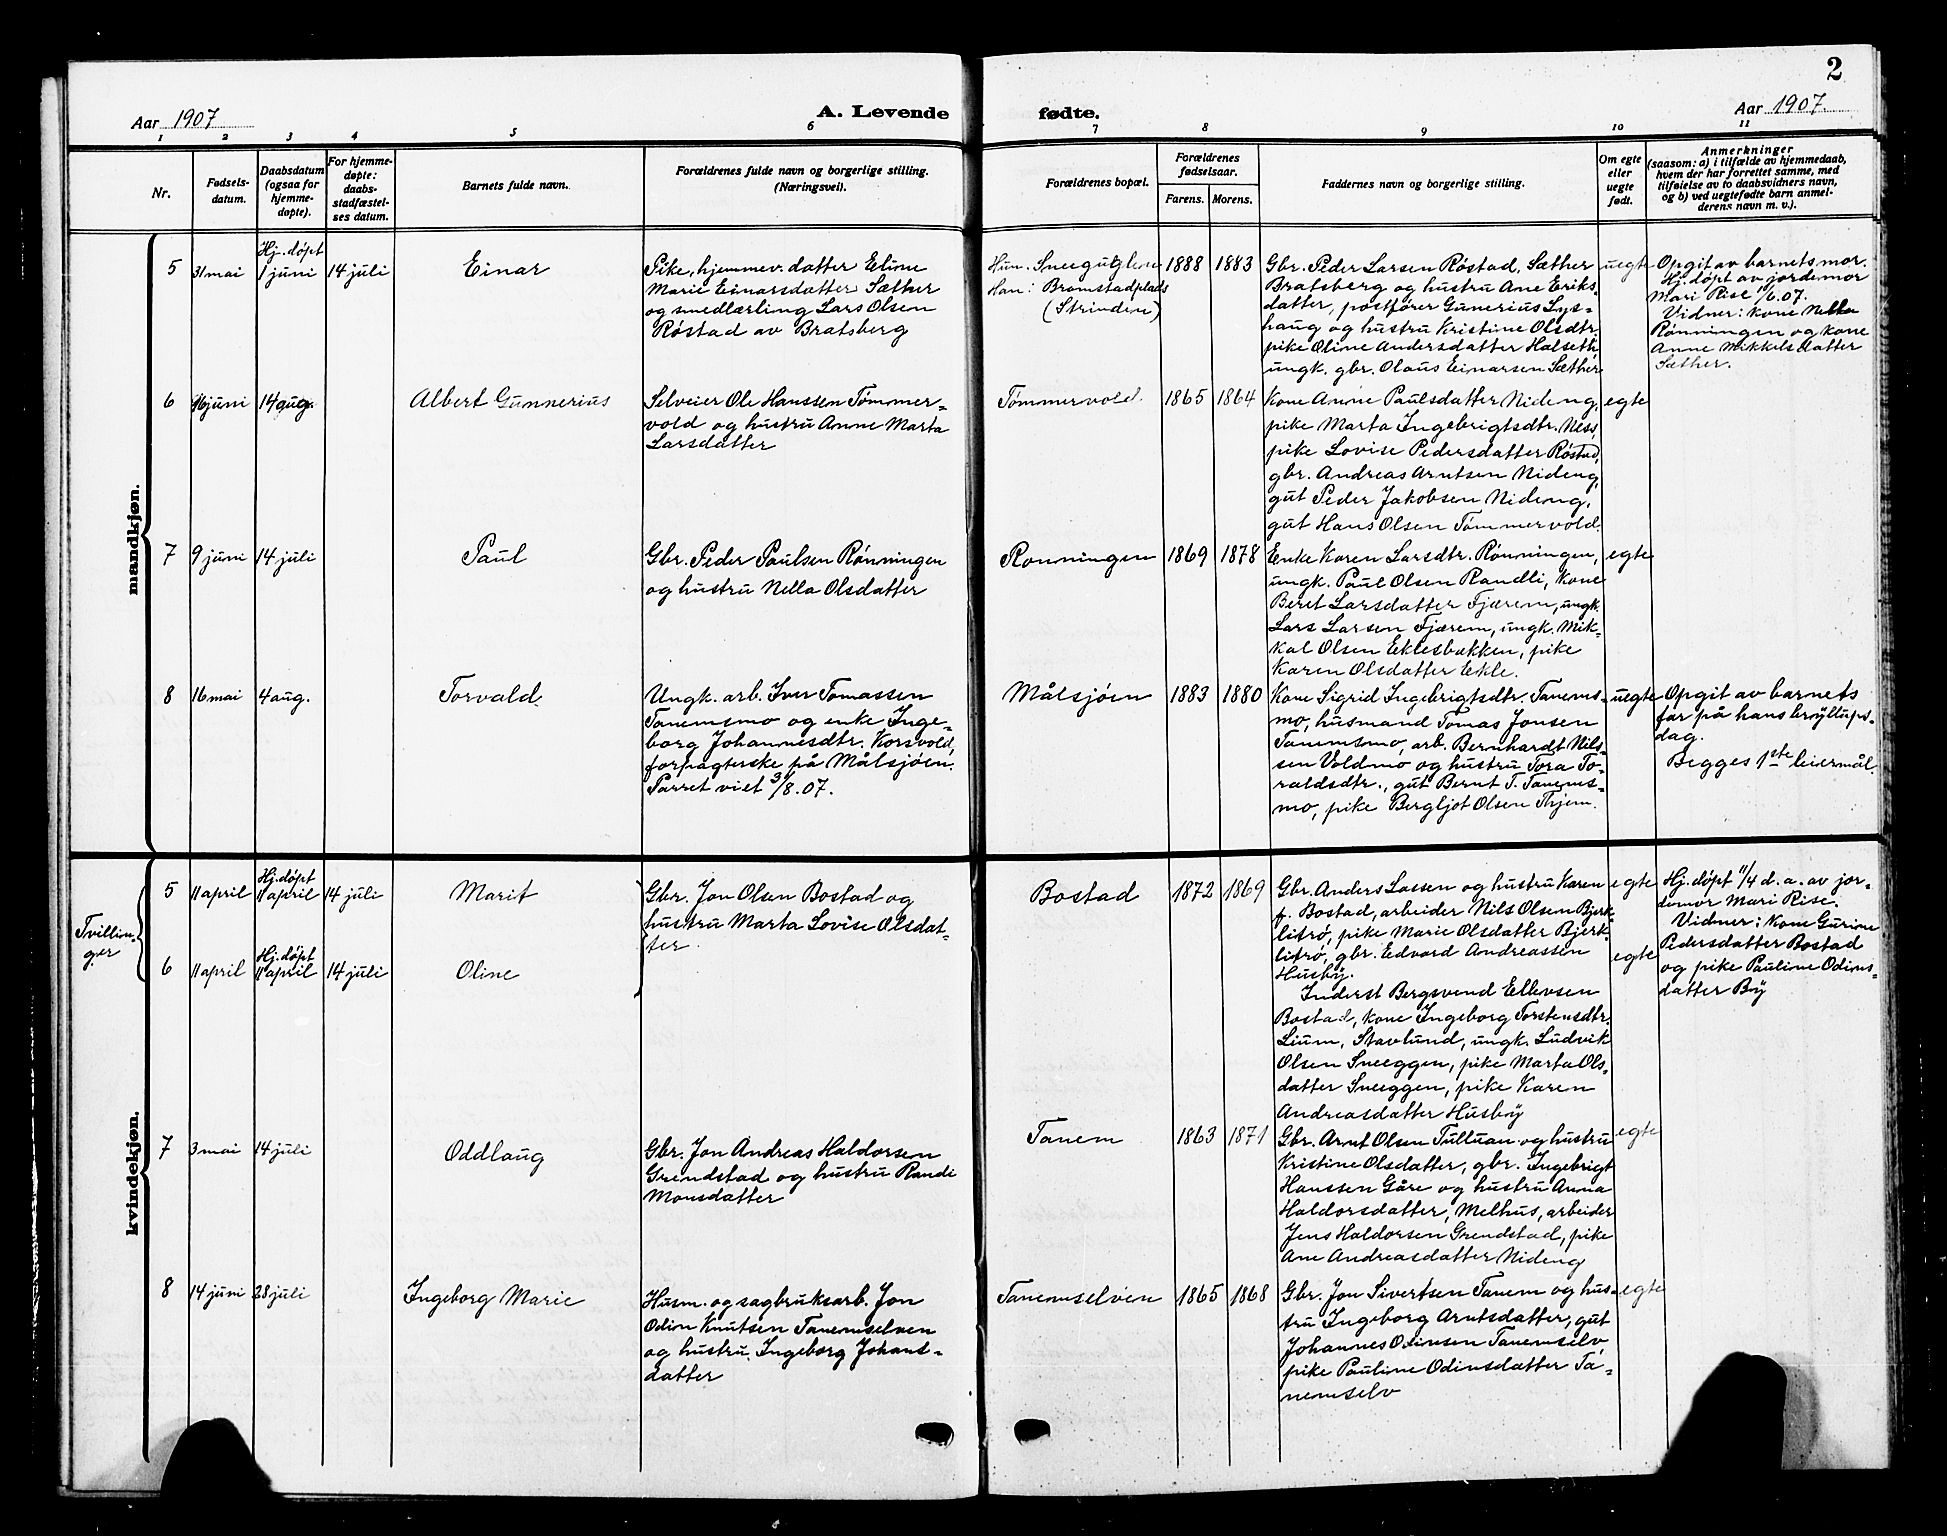 2
Aar 1907
A. Levende
fødte.
Aar 1907.
1 2 3 4 5 6 7 8 9 10 11
Nr.
Fødsels-
datum.
Daabsdatum
(ogsaa for
hjemme-
døpte).
For hjemme-
døpte:
daabs-
stadfæstel-
ses datum.
Barnets fulde navn.
Forældrenes fulde navn og borgerlige stilling.
(Næringsvei).
Forældrenes bopæl.
Forældrenes
fødselsaar.
Farens. Morens.
Faddernes navn og borgerlige stilling.
Om egte
eller
uegte
født.
Anmerkninger
(saasom: a) i tilfælde av hjemmedaab,
hvem der har forrettet samme, med
tilføielse av to daabsvidners navn,
og b) ved uegtefødte barn anmel-
derens navn m. v.).
mandkjøn.
5
31 mai
Hj. døpt
1 juni
14 juli
Einar
Pike, hjemmev. datter Eline
Marie Einarsdatter Sæther
og smedlærling Lars Olsen
Røstad av Bratsberg
Hun. Sneeguglen
Han: Bromstadplads
(Strinden)
1888 1883
Gbr. Peder Larsen Røstad, Sæther
Bratsberg og hustru Ane Eriks-
datter, postfører Gunerius Lys-
haug og hustru Kristine Olsdtr.
pike Oline Andersdatter Halseth
ungk. gbr. Olaus Einarsen Sæther
uegte
Opgit av barnets mor.
Hj. døpt av jordemor
Mari Rise 1/6.07.
Vidner: kone Nella
Rønningen og kone
Anne Mikkelsdatter
Sæther.
6
16 juni
14 aug.
Albert Gunnerius
Selveier Ole Hanssen Tømmer-
vold og hustru Anne Marta
Larsdatter
Tømmervold.
1865 1864
Kone Anne Paulsdatter Nideng,
pike Marta Ingebrigtsdtr. Ness,
pike Lovise Pedersdatter Røstad,
gbr. Andreas Arntsen Nideng,
gut Peder Jakobsen Nideng,
gut Hans Olsen Tømmervold.
egte
7
9 juni
14 juli
Paul
Gbr. Peder Paulsen Rønningen
og hustru Nella Olsdatter
Rønningen
1869 1878
Enke Karen Larsdtr. Rønningen,
ungk. Paul Olsen Randli, kone
Beret Larsdatter Fjærem, ungk.
Lars Larsen Fjærem, ungk. Mik-
kal Olsen Eklesbakken, pike
Karen Olsdatter Ekle.
egte
8
16 mai
4 aug.
Torvald.
Ungk. arb. Iver Tomassen
Tanemsmo og enke Inge-
borg Johannesdtr. Korsvold,
forpagterske på Målsjøen.
Parret viet 3/8.07.
Målsjøen
1883 1880
Kone Sigrid Ingebrigtsdtr. Tanems-
mo, husmand Tomas Jonsen
Tanemsmo, arb. Bernhardt Nils-
sen Voldmo og hustru Tora To-
raldsdtr., gut Bernt T. Tanems-
mo, pike Bergljot Olsen Thjem.
uegte
Opgit av barnets
far på hans bryllups-
dag.
Begges 1ste leiermål.
kvindekjøn.
Tvillin-
ger
5
11 april
Hj. døpt
11 april
14 juli
Marit
Gbr. Jon Olsen Bostad og
hustru Marta Lovise Olsdat-
ter
Bostad
1872 1869
Gbr. Anders Lassen og hustru Karen
f. Bostad, arbeider Nils Olsen Bjerk-
litrø, pike Marie Olsdatter Bjerk-
litrø, gbr. Edvard Andreassen
Husby.
egte
Hj. døpt 11/4 d. a. av jor-
demor Mari Rise.
Vidner: Kone Gurine
Pedersdatter Bostad
og pike Pauline Odins-
datter By
6
11 april
Hj. døpt
11 april
14 juli
Oline
Inderst Bergsvend Ellevsen
Bostad, kone Ingeborg Torstensdtr.
Lium, Stavlund, ungk. Ludvik
Olsen Sneeggen, pike Marta Ols-
datter Sneeggen, pike Karen
Andreasdatter Husby
egte
7
3 mai
14 juli
Oddlaug
Gbr. Jon Andreas Haldorsen
Grendstad og hustru Randi
Monsdatter
Tanem
1863 1871
Gbr. Arnt Olsen Tulluan og hustru
Kristine Olsdatter, gbr. Ingebrigt
Hanssen Gåre og hustru Anna
Haldorsdatter, Melhus, arbeider
Jens Haldorsen Grendstad, pike
Ane Andreasdatter Nideng
egte
8
14 juni
28 juli
Ingeborg Marie
Husm. og sagbruksarb. Jon
Odin Knutsen Tanemselven
og hustru Ingeborg Johans-
datter
Tanemselven
1865 1868
Gbr. Jon Sivertsen Tanem og hus-
tru Ingeborg Arntsdatter, gut
Johannes Odinsen Tanemselv
pike Pauline Odinsdatter Ta-
nemselv
egte